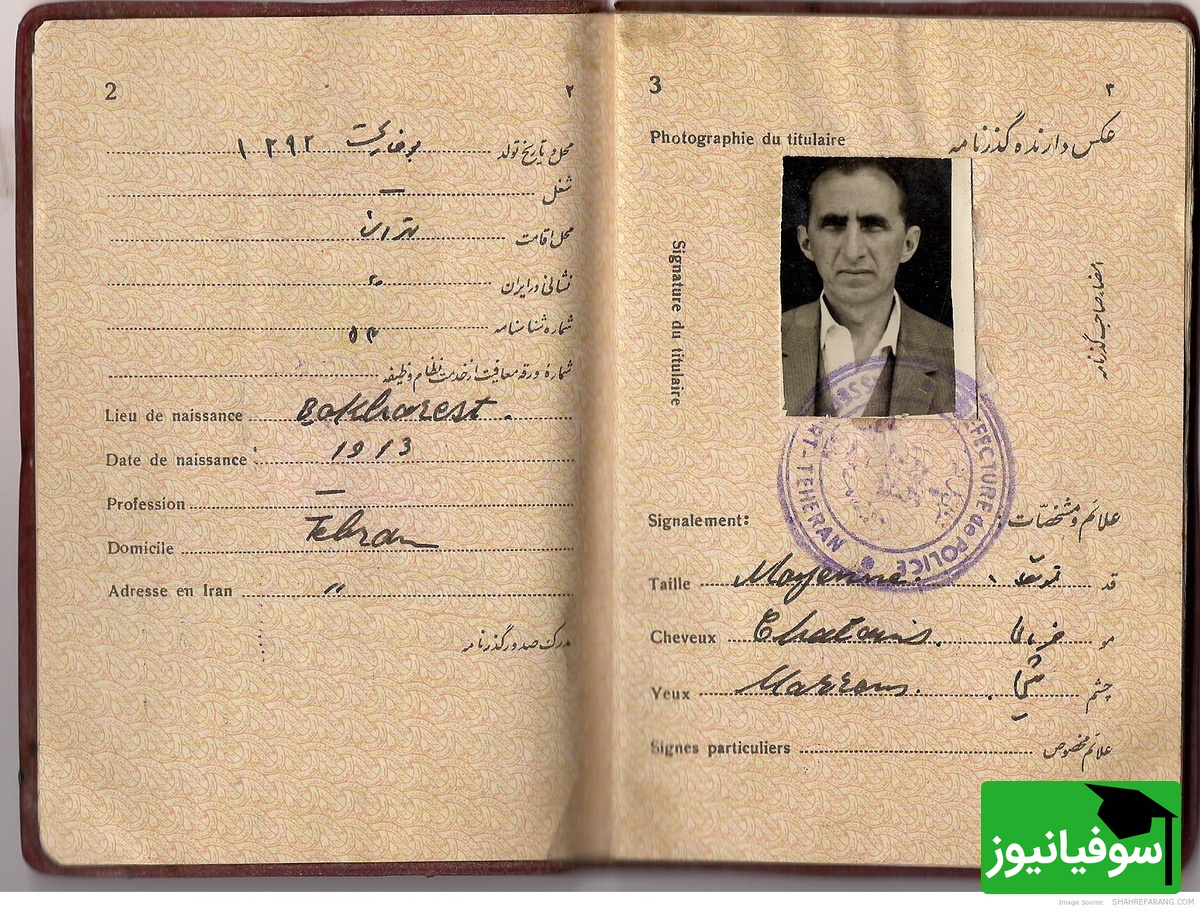 2
۲
محل و تاریخ تولد بوخارست ۱۲۹۲
شغل —
محل اقامت تهران
نشانی در ایران "
شماره شناسنامه
شماره ورقه معافیت از خدمت نظام وظیفه
Lieu de naissance Bokharest.
Date de naissance 1913
Profession —
Domicile Tehran
Adresse en Iran "
مدرک صدور گذرنامه
3
۳
Photographie du titulaire
عکس دارنده گذرنامه
Signature du titulaire
امضاء صاحب گذرنامه
PREFECTURE de POLICE
TEHERAN
Signalement:
علائم و مشخصات
Taille Moyenne.
قد
Cheveux Chatains.
مو خرمائی
Yeux Marrons.
چشم میشی
Signes particuliers
علائم مخصوص
سوفیانیوز
Image Source: SHAHREFARANG.COM